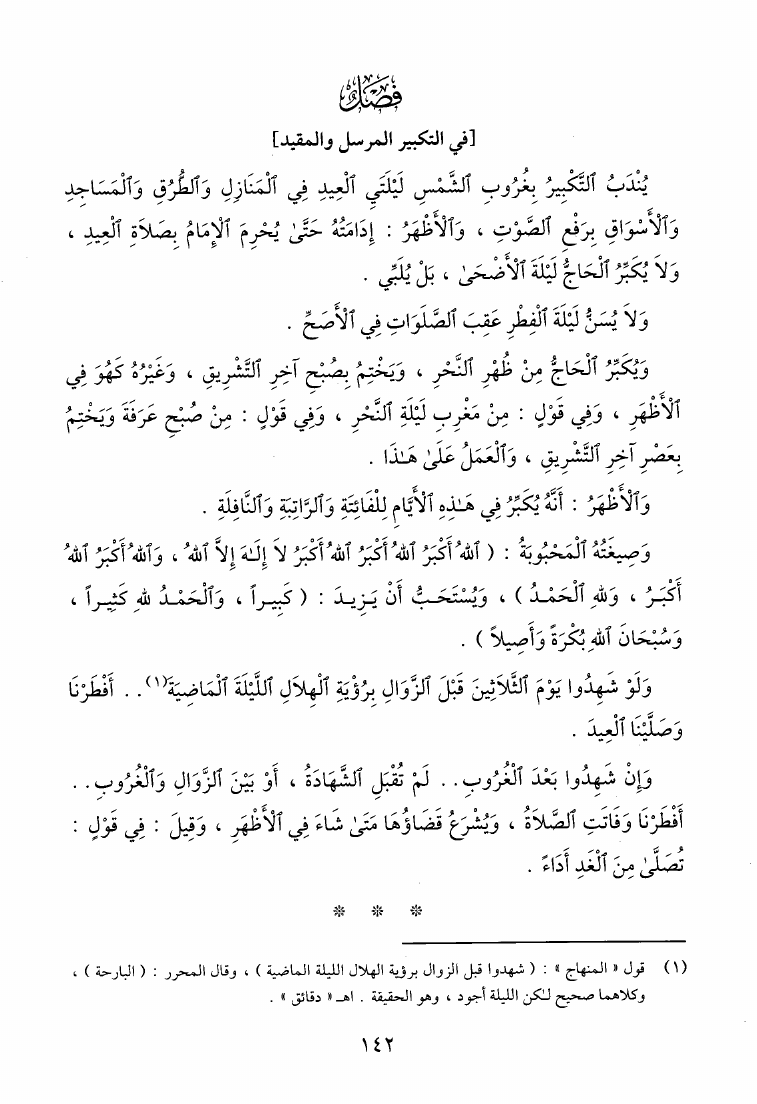 فَصْلٌ
[في التكبير المرسل والمقيد]
يُنْدَبُ ٱلتَّكْبِيرُ بِغُرُوبِ ٱلشَّمْسِ لَيْلَتَيِ ٱلْعِيدِ فِي ٱلْمَنَازِلِ وَٱلطُّرُقِ وَٱلْمَسَاجِدِ
وَٱلأَسْوَاقِ بِرَفْعِ ٱلصَّوْتِ ، وَٱلأَظْهَرُ : إِدَامَتُهُ حَتَّىٰ يُحْرِمَ ٱلإِمَامُ بِصَلاَةِ ٱلْعِيدِ ،
وَلاَ يُكَبِّرُ ٱلْحَاجُّ لَيْلَةَ ٱلأَضْحَىٰ ، بَلْ يُلَبِّي .
وَلاَ يُسَنُّ لَيْلَةَ ٱلْفِطْرِ عَقِبَ ٱلصَّلَوَاتِ فِي ٱلأَصَحِّ .
وَيُكَبِّرُ ٱلْحَاجُّ مِنْ ظُهْرِ ٱلنَّحْرِ ، وَيَخْتِمُ بِصُبْحِ آخِرِ ٱلتَّشْرِيقِ ، وَغَيْرُهُ كَهُوَ فِي
ٱلأَظْهَرِ ، وَفِي قَوْلٍ : مِنْ مَغْرِبِ لَيْلَةِ ٱلنَّحْرِ ، وَفِي قَوْلٍ : مِنْ صُبْحِ عَرَفَةَ وَيَخْتِمُ
بِعَصْرِ آخِرِ ٱلتَّشْرِيقِ ، وَٱلْعَمَلُ عَلَىٰ هَـٰذَا .
وَٱلأَظْهَرُ : أَنَّهُ يُكَبِّرُ فِي هَـٰذِهِ ٱلأَيَّامِ لِلْفَائِتَةِ وَٱلرَّاتِبَةِ وَٱلنَّافِلَةِ .
وَصِيغَتُهُ ٱلْمَحْبُوبَةُ : ( ٱللهُ أَكْبَرُ ٱللهُ أَكْبَرُ ٱللهُ أَكْبَرُ لاَ إِلَـٰهَ إِلاَّ ٱللهُ ، وَٱللهُ أَكْبَرُ ٱللهُ
أَكْبَـرُ ، وَللهِ ٱلْحَمْـدُ ) ، وَيُسْتَحَـبُّ أَنْ يَـزِيـدَ : ( كَبِيـراً ، وَٱلْحَمْـدُ للهِ كَثِيـراً ،
وَسُبْحَانَ ٱللهِ بُكْرَةً وَأَصِيلاً ) .
وَلَوْ شَهِدُوا يَوْمَ ٱلثَّلاَثِينَ قَبْلَ ٱلزَّوَالِ بِرُؤْيَةِ ٱلْهِلاَلِ ٱللَّيْلَةَ ٱلْمَاضِيَةَ(١) . . أَفْطَرْنَا
وَصَلَّيْنَا ٱلْعِيدَ .
وَإِنْ شَهِدُوا بَعْدَ ٱلْغُرُوبِ . . لَمْ تُقْبَلِ ٱلشَّهَادَةُ ، أَوْ بَيْنَ ٱلزَّوَالِ وَٱلْغُرُوبِ . .
أَفْطَرْنَا وَفَاتَتِ ٱلصَّلاَةُ ، وَيُشْرَعُ قَضَاؤُهَا مَتَىٰ شَاءَ فِي ٱلأَظْهَرِ ، وَقِيلَ : فِي قَوْلٍ :
تُصَلَّىٰ مِنَ ٱلْغَدِ أَدَاءً .
* * *
(١) قول « المنهاج » : ( شهدوا قبل الزوال برؤية الهلال الليلة الماضية ) ، وقال المحرر : ( البارحة ) ،
وكلاهما صحيح لـٰكن الليلة أجود ، وهو الحقيقة . اهـ « دقائق » .
١٤٢